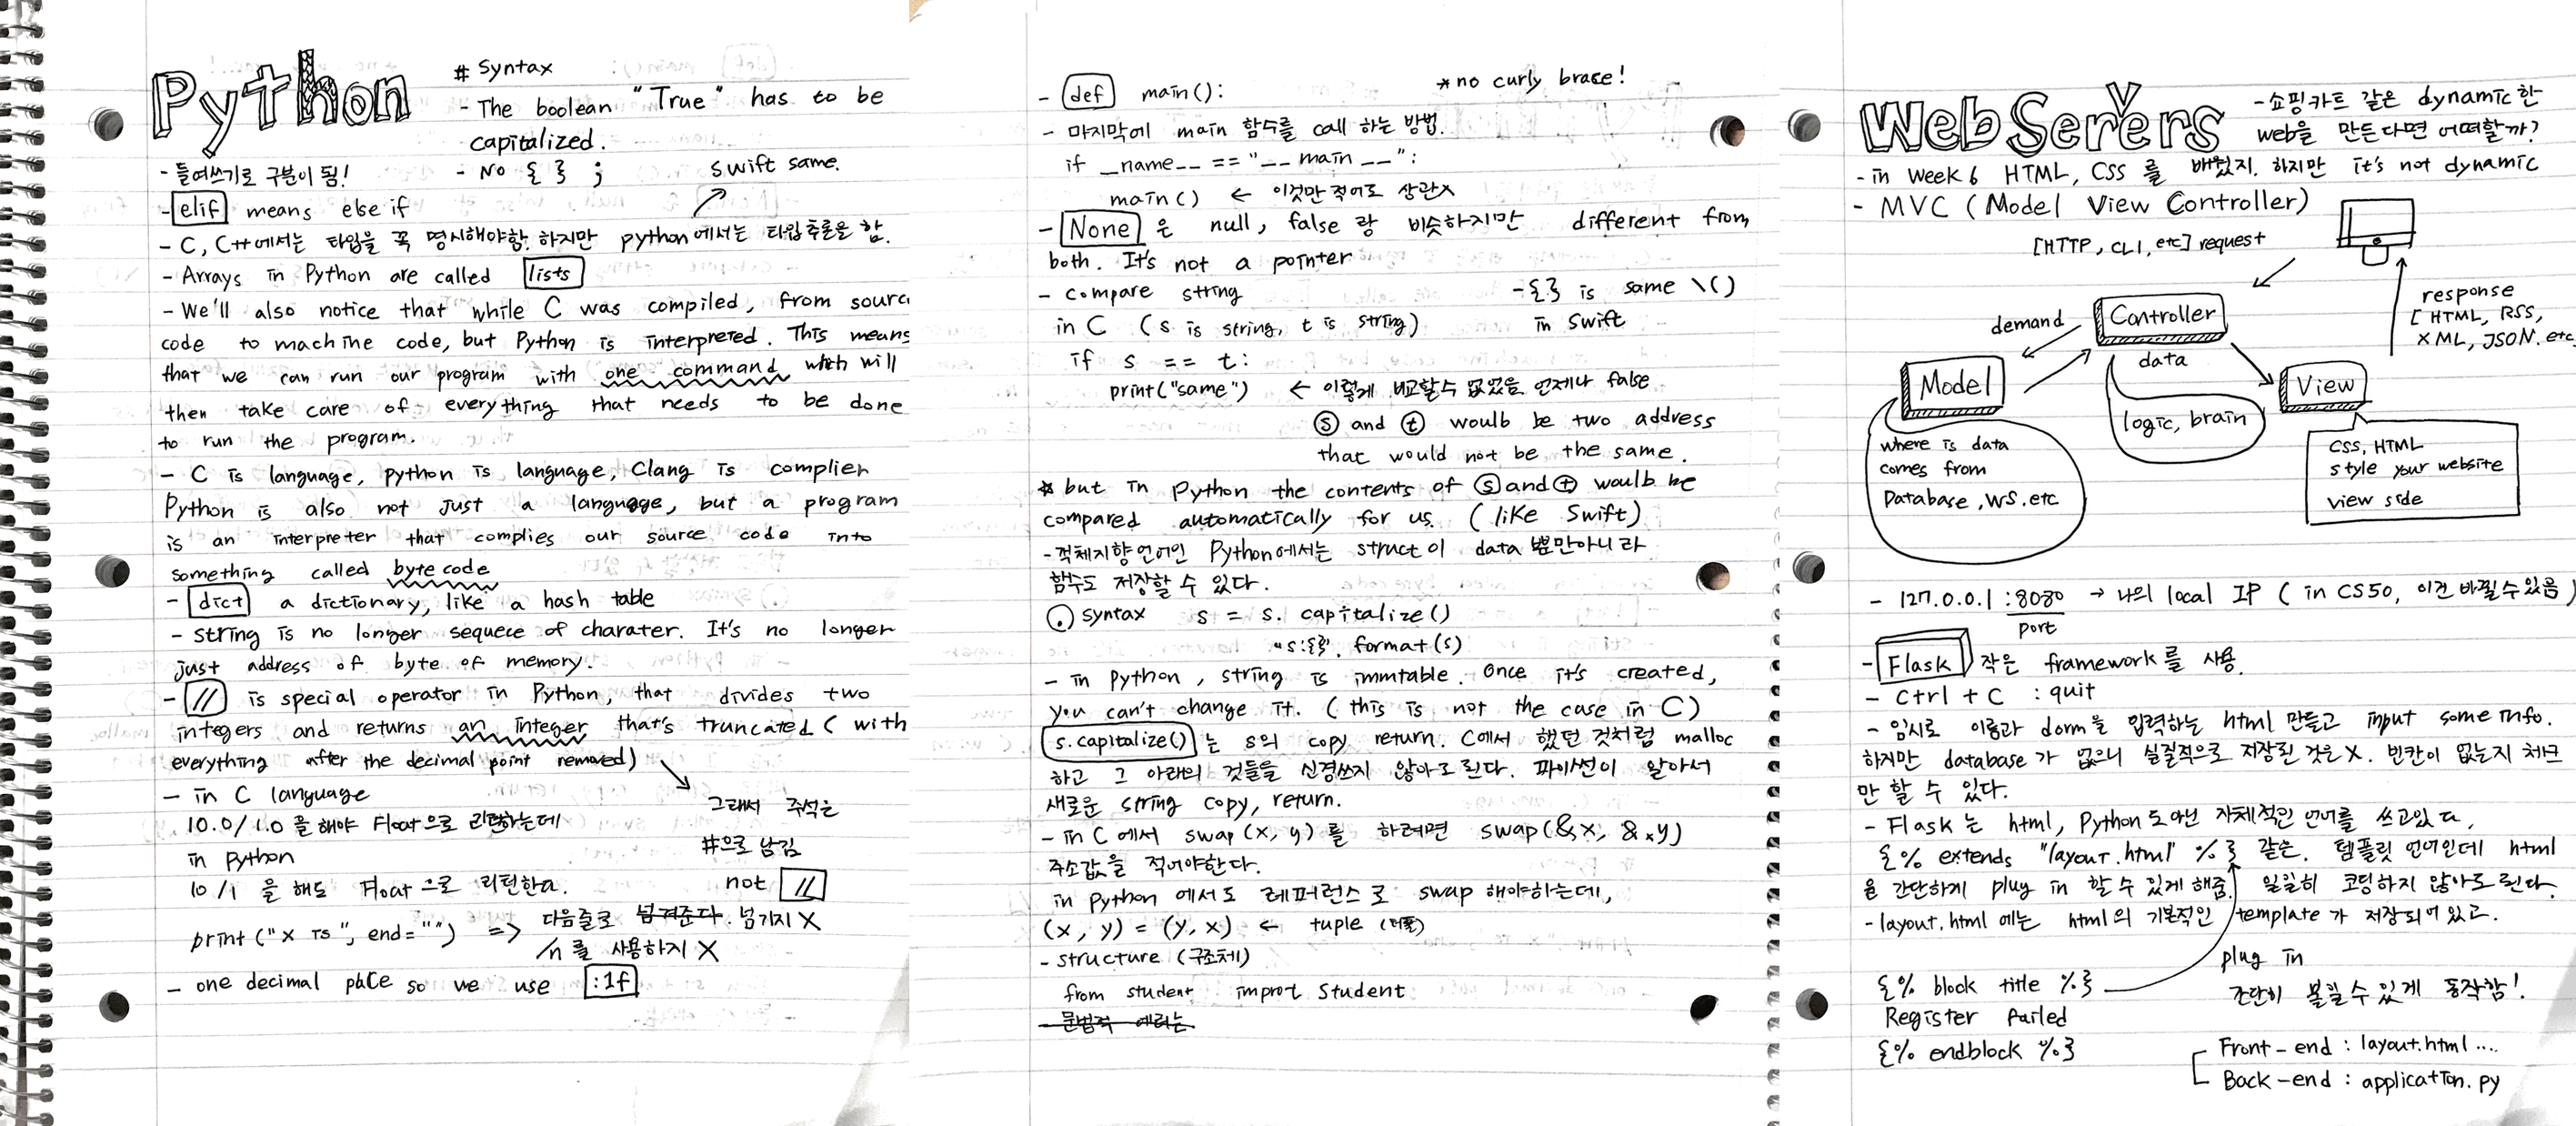 Python
# Syntax
- The boolean "True" has to be
capitalized.
- 들여쓰기로 구분이 됨!
- No { } ;
swift same.
- elif means else if
- C, C++에서는 타입을 꼭 명시해야함. 하지만 python에서는 타입추론을 함.
- Arrays in Python are called lists
- We'll also notice that while C was compiled, from sourc
code to machine code, but Python is interpreted. This means
that we can run our program with one command which will
then take care of everything that needs to be done
to run the program.
- C is language, python is language, Clang is complier
Python is also not just a language, but a program
is an interpreter that complies our source code into
something called byte code
- dict a dictionary, like a hash table
- string is no longer sequece of charater. It's no longer
just address of byte of memory.
- // is special operator in Python, that divides two
integers and returns an integer that's truncated (with
everything after the decimal point removed)
그래서 주석은
#으로 남김
not //
- in C language
10.0/1.0 을 해야 Float으로 리턴하는데
in python
10/1 을 해도 Float으로 리턴한다.
print ("x is ", end="") => 다음줄로 넘겨준다. 넘기지 X
/n 를 사용하지 X
- one decimal place so we use :1f
- def main():
*no curly brace!
- 마지막에 main 함수를 call 하는 방법.
if __name__ == "__main__":
main() ← 이것만 적어도 상관X
- None 은 null, false 랑 비슷하지만 different from
both. It's not a pointer
- compare string
in C (s is string, t is string)
- {} is same \()
in swift
if s == t:
print("same") ← 이렇게 비교할수 없었음. 언제나 false
s and t would be two address
that would not be the same.
* but in Python the contents of s and t would be
compared automatically for us. (like Swift)
- 객체지향언어인 Python에서는 struct이 data 뿐만아니라
함수도 저장할 수 있다.
. syntax s = s. capitalize()
"s:{}". format(s)
- in python, string is immtable. Once it's created,
you can't change it. (this is not the case in C)
s.capitalize()는 s의 copy return. C에서 했던 것처럼 malloc
하고 그 아래의 것들을 신경쓰지 않아도 된다. 파이썬이 알아서
새로운 string copy, return.
- in C 에서 swap (x, y) 를 하려면 swap(&x, &y)
주소값을 적어야한다.
in Python 에서도 레퍼런스로 swap 해야하는데,
(x, y) = (y, x) ← tuple (터플)
- structure (구조체)
from student improt Student
- 문법적 에러는
Web Servers
- 쇼핑카트 같은 dynamic한
web을 만든다면 어떠할까?
- in week 6 HTML, CSS 를 배웠지. 하지만 it's not dynamic
- MVC (Model View Controller)
[HTTP, CLI, etc] request
response
[HTML, RSS,
XML, JSON. etc
demand
Controller
data
Model
View
logic, brain
where is data
comes from
Database, WS. etc
CSS, HTML
style your website
view side
- 127.0.0.1 :8080 → 나의 local IP (in CS50, 이건 바뀔수있음)
port
- Flask 작은 framework를 사용.
- Ctrl + C : quit
- 임시로 이름과 dorm을 입력하는 html 만들고 input some info.
하지만 database가 없으니 실질적으로 저장된 것은 X. 빈칸이 없는지 체크
만 할 수 있다.
- Flask 는 html, Python도 아닌 자체적인 언어를 쓰고있다,
{% extends "layout.html" %} 같은. 템플릿 언어인데 html
을 간단하게 plug in 할 수 있게 해줌. 일일히 코딩하지 않아도 된다.
- layout.html 에는 html의 기본적인 template가 저장되어 있고.
plug in
{% block title %}
간단히 볼일수 있게 동작함!
Register Failed
{% endblock %}
Front-end : layout.html ....
Back-end : application.py